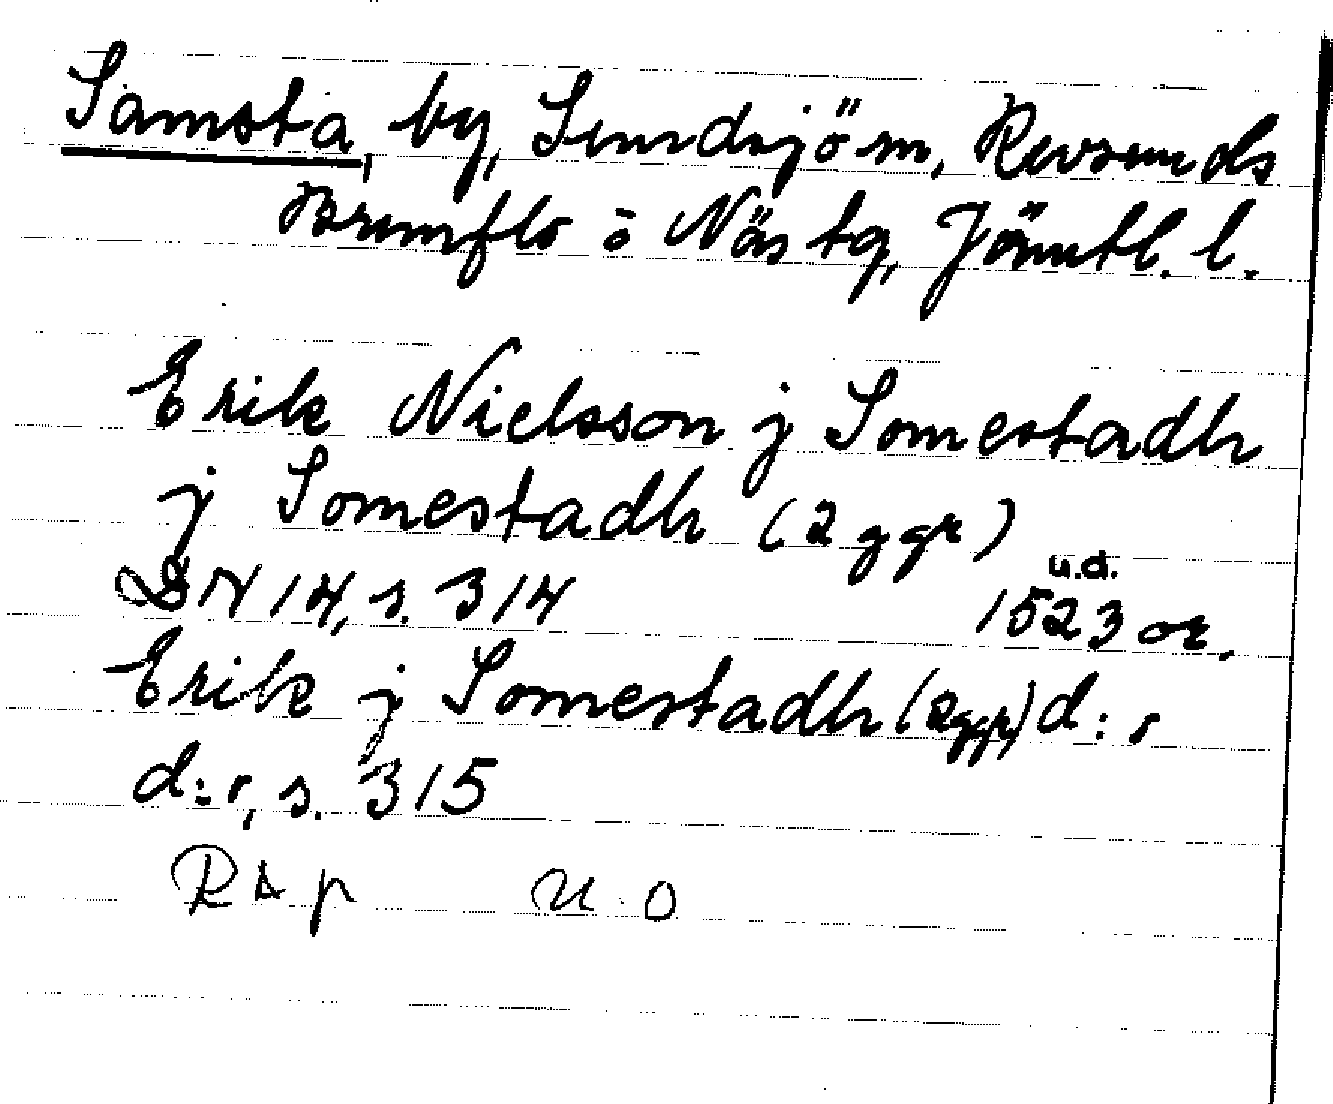 Samsta, by, Sundsjö sn, Revsunds
Brunflo o Näs tg, Jämtl. l.
Erik Nielsson j Somestadh
j Somestadh (2 ggr)
u.d.
DN 14, s. 314 1523 or.
Erik j Somestadh (2ggr) d:r
d:r, s. 315
RAp u.o